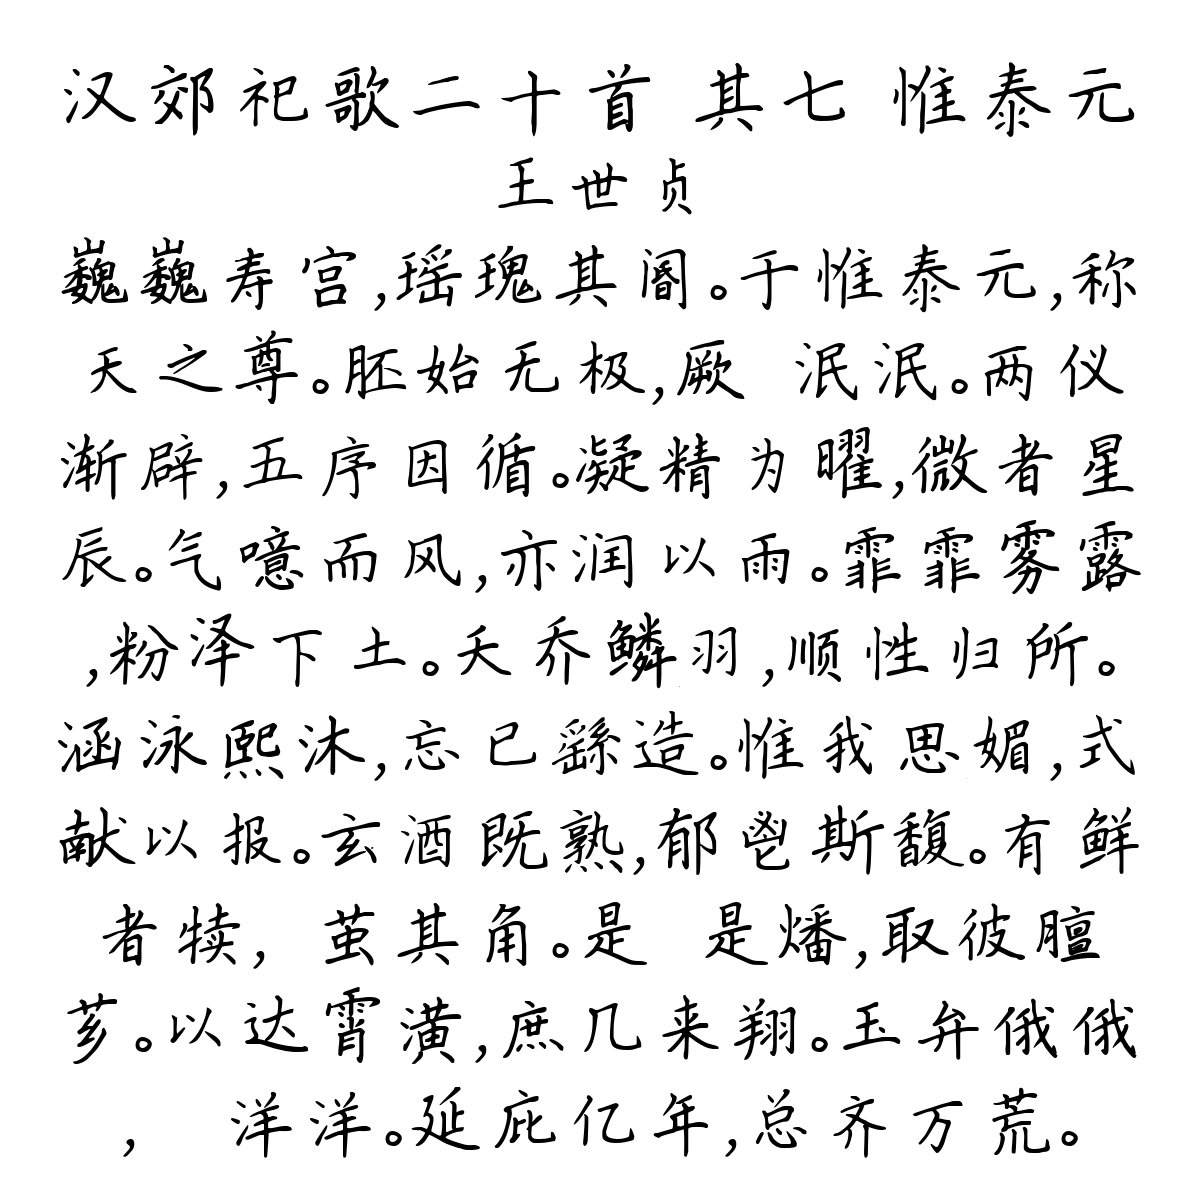 汉郊祀歌二十首 其七 惟泰元
王世贞
巍巍寿宫,瑶瑰其阍。于惟泰元,称
天之尊。胚始无极,厥 泯泯。两仪
渐辟,五序因循。凝精为曜,微者星
辰。气噫而风,亦润以雨。霏霏雾露
,粉泽下土。夭乔鳞羽,顺性归所。
涵泳熙沐,忘已繇造。惟我思媚,式
献以报。玄酒既熟,郁鬯斯馥。有鲜
者犊, 茧其角。是 是燔,取彼膻
芗。以达霄潢,庶几来翔。玉弁俄俄
, 洋洋。延庇亿年,总齐万荒。